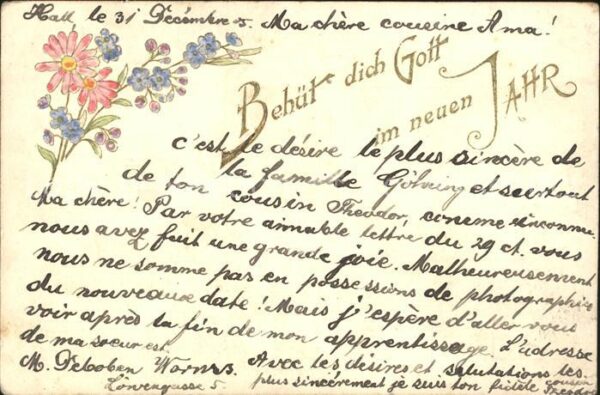 Hall, le 31 Décembre 5. Ma chère cousine Ama!
Behüt dich Gott
im neuen JAHR
c'est le désire le plus sincère de
de ton la famille Göhring et surtout
cousin Theodor, comme inconnu.
Ma chère! Par votre aimable lettre du 29 ct. vous
nous avez fait une grande joie. Malheureusement
nous ne somme pas en possessions de photographie
du nouveaux date! Mais j'espère d'aller vous
voir après la fin de mon apprentissage. L'adresse
de ma soeur est.
M. Deboben Worms. Avec les désires et salutations les
Löwengasse 5. plus sincérement je suis ton fidèle cousin
Theodor